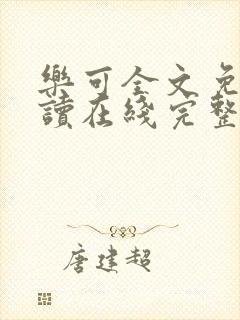 樂可全文免
讀在綫完整
唐建超